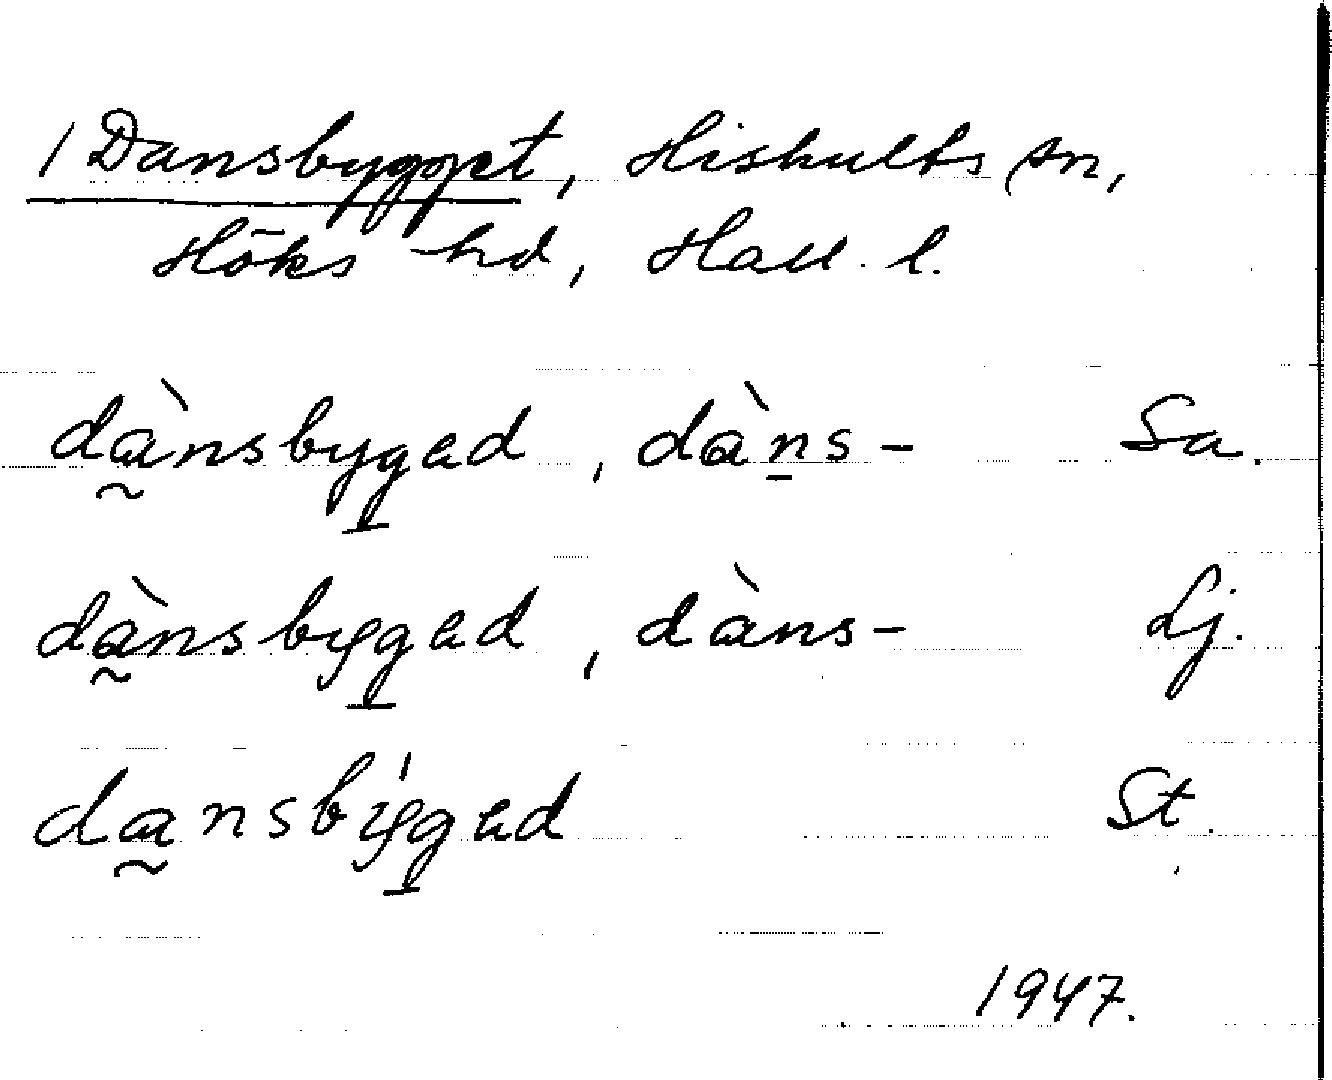 1 Dansbygget, Hishults sn,
Höks hd, Hall. l.
dàn̰sbyg̲ad, dàn̲s- Sa.
dà̰nsbyg̲ad, dàns- Lj.
da̰nsbýg̲ad St.
1947.